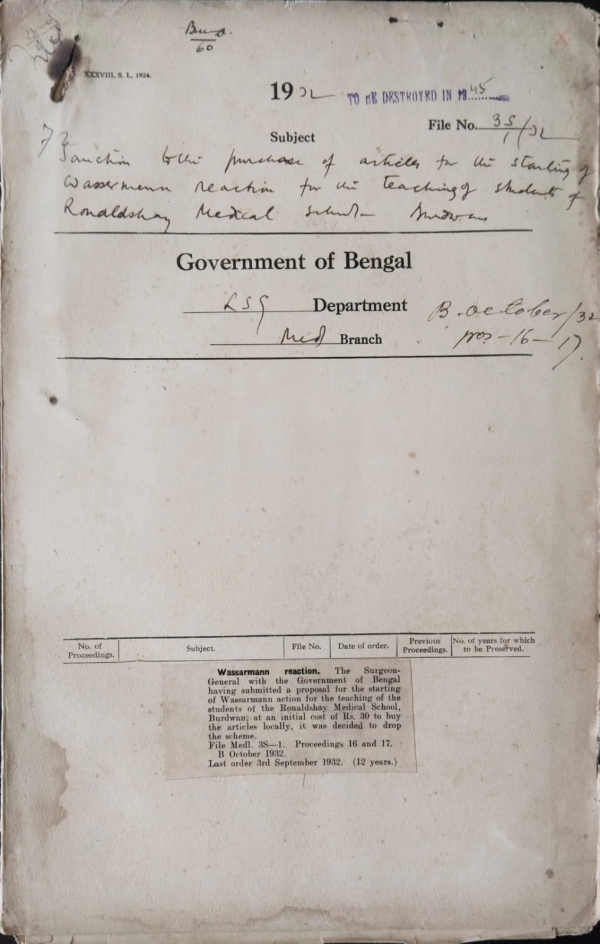 Burd.
60
XXXVIII, S. I., 1924.
1932
TO BE DESTROYED IN 1945
File No. 3S/1/32
Subject
Sanction to the purchase of articles for the starting of
Wassermann reaction for the teaching of students of
Ronaldshay Medical School Burdwan
Government of Bengal
LSG Department
B. October/32
Med Branch
pros-16-17.
No. of Proceedings.
Subject.
File No.
Date of order.
Previous Proceedings.
No. of years for which to be Preserved.
Wassarmann reaction. The Surgeon-
General with the Government of Bengal
having submitted a proposal for the starting
of Wassarmann action for the teaching of the
students of the Ronaldshay Medical School,
Burdwan, at an initial cost of Rs. 30 to buy
the articles locally, it was decided to drop
the scheme.
File Medl. 3S—1. Proceedings 16 and 17.
B October 1932.
Last order 3rd September 1932. (12 years.)